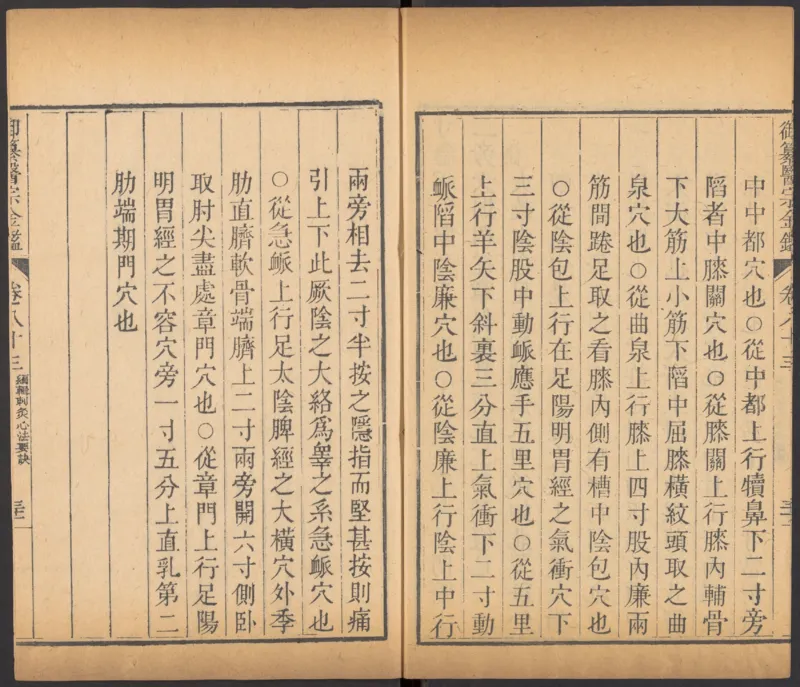 御纂醫宗金鑑
卷八十三
中中都穴也○從中都上行犢鼻下二寸旁
陷者中膝關穴也○從膝關上行膝內輔骨
下大筋上小筋下陷中屈膝橫紋頭取之曲
泉穴也○從曲泉上行膝上四寸股內廉兩
筋間踡足取之看膝內側有槽中陰包穴也
○從陰包上行在足陽明胃經之氣衝穴下
三寸陰股中動䘑應手五里穴也○從五里
上行羊矢下斜裏三分直上氣衝下二寸動
䘑陷中陰廉穴也○從陰廉上行陰上中行
兩旁相去二寸半按之隱指而堅甚按則痛
引上下此厥陰之大絡爲睾之系急䘑穴也
○從急䘑上行足太陰脾經之大橫穴外季
肋直臍軟骨端臍上二寸兩旁開六寸側臥
取肘尖盡處章門穴也○從章門上行足陽
明胃經之不容穴旁一寸五分上直乳第二
肋端期門穴也
御纂醫宗金鑑
卷八十三
編輯刺灸心法要訣